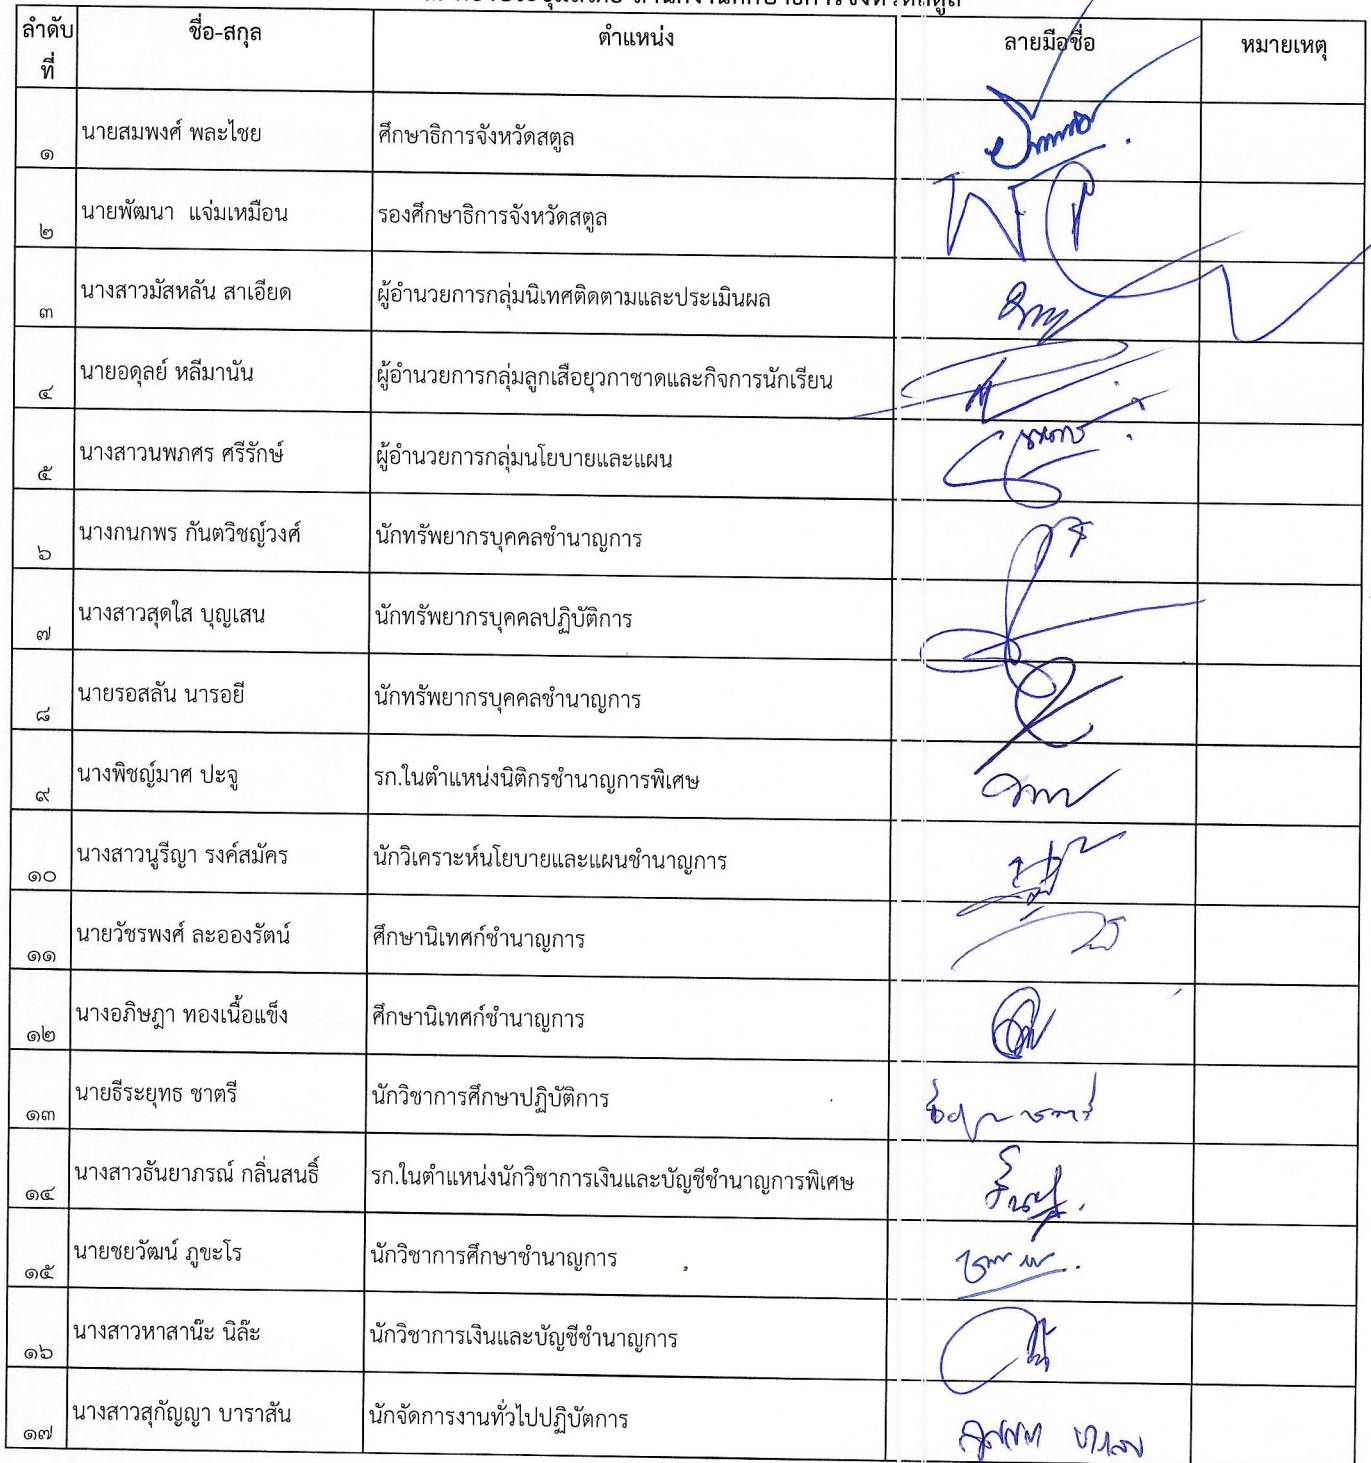 ลำดับที่ ชื่อ-สกุล ตำแหน่ง ลายมือชื่อ หมายเหตุ
๑ นายสมพงศ์ พละไชย ศึกษาธิการจังหวัดสตูล
๒ นายพัฒนา แจ่มเหมือน รองศึกษาธิการจังหวัดสตูล
๓ นางสาวมัสหลัน สาเอียด ผู้อำนวยการกลุ่มนิเทศติดตามและประเมินผล
๔ นายอดุลย์ หลีมานัน ผู้อำนวยการกลุ่มลูกเสือยุวกาชาดและกิจการนักเรียน
๕ นางสาวนพภศร ศรีรักษ์ ผู้อำนวยการกลุ่มนโยบายและแผน
๖ นางกนกพร กันตวิชญ์วงศ์ นักทรัพยากรบุคคลชำนาญการ
๗ นางสาวสุดใส บุญเสน นักทรัพยากรบุคคลปฏิบัติการ
๘ นายรอสลัน นารอยี นักทรัพยากรบุคคลชำนาญการ
๙ นางพิชญ์มาศ ปะจู รก.ในตำแหน่งนิติกรชำนาญการพิเศษ
๑๐ นางสาวนูรีญา รงค์สมัคร นักวิเคราะห์นโยบายและแผนชำนาญการ
๑๑ นายวัชรพงศ์ ละอองรัตน์ ศึกษานิเทศก์ชำนาญการ
๑๒ นางอภิษฎา ทองเนื้อแข็ง ศึกษานิเทศก์ชำนาญการ
๑๓ นายธีระยุทธ ชาตรี นักวิชาการศึกษาปฏิบัติการ
๑๔ นางสาวธันยาภรณ์ กลิ่นสนธิ์ รก.ในตำแหน่งนักวิชาการเงินและบัญชีชำนาญการพิเศษ
๑๕ นายชยวัฒน์ ภูขะโร นักวิชาการศึกษาชำนาญการ
๑๖ นางสาวหาสาน๊ะ นิล๊ะ นักวิชาการเงินและบัญชีชำนาญการ
๑๗ นางสาวสุกัญญา บาราสัน นักจัดการงานทั่วไปปฏิบัตการ